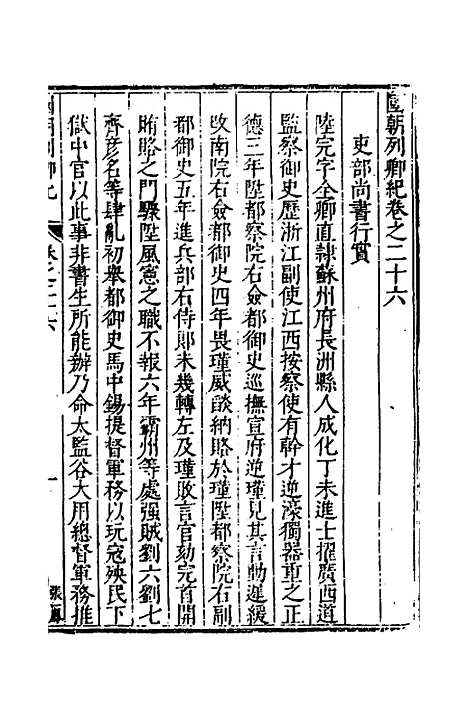 國朝列卿紀卷之二十六
吏部尚書行實
陸完字全卿直隷蘇州府長洲縣人成化丁未進士擢廣西道
監察御史歷浙江副使江西按察使有幹才逆濠獨器重之正
德三年陞都察院右僉都御史巡撫宣府逆瑾見其言動遲緩
改南院右僉都御史四年畏瑾威談納賂於瑾陞都察院右副
都御史五年進兵部右侍郎未幾轉左及瑾敗言官劾完首開
賄賂之門驟陞風憲之職不報六年霸州等處强賊劉六劉七
齊彦名等肆亂初舉都御史馬中錫提督軍務以玩寇殃民下
獄中官以此事非書生所能辦乃命太監谷大用總督軍務推